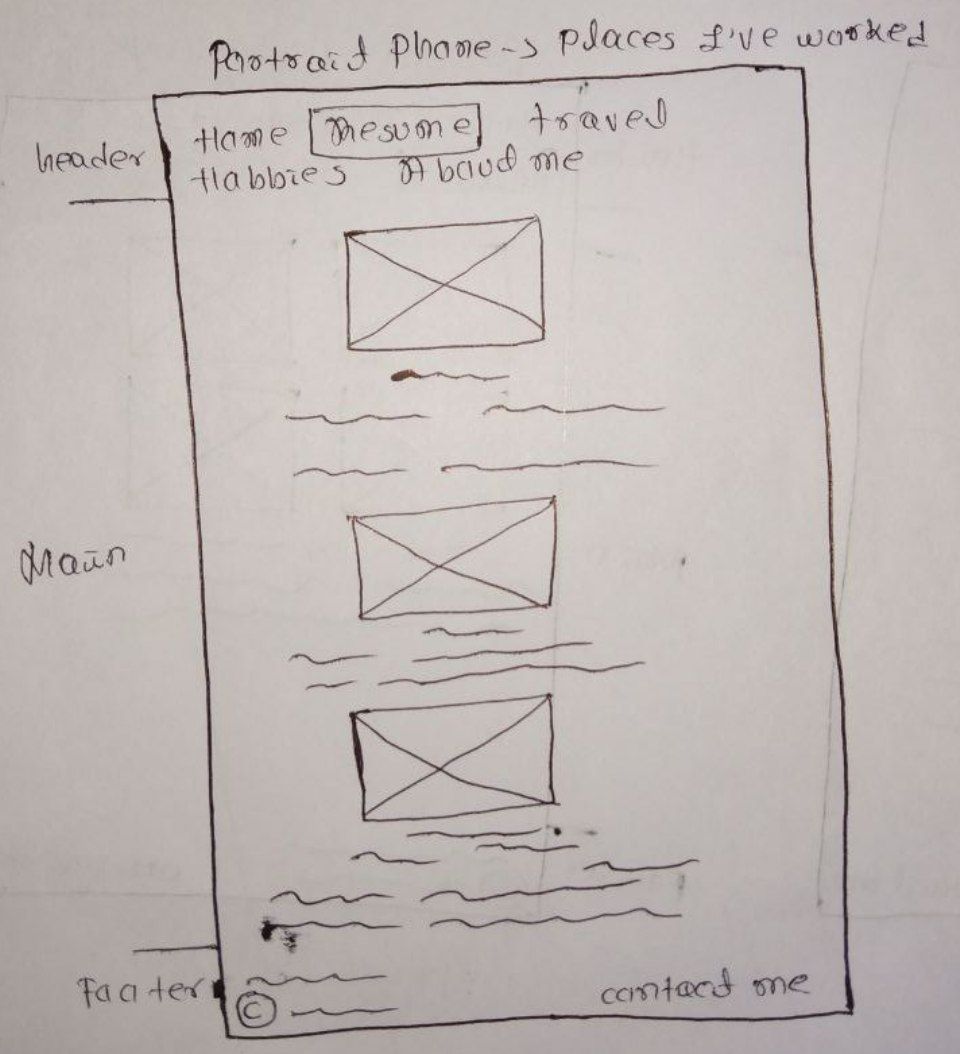 Portraid Phone -> Places I've worked
header
Home Resume travel
Hobbies About me
Main
Footer
© contact me